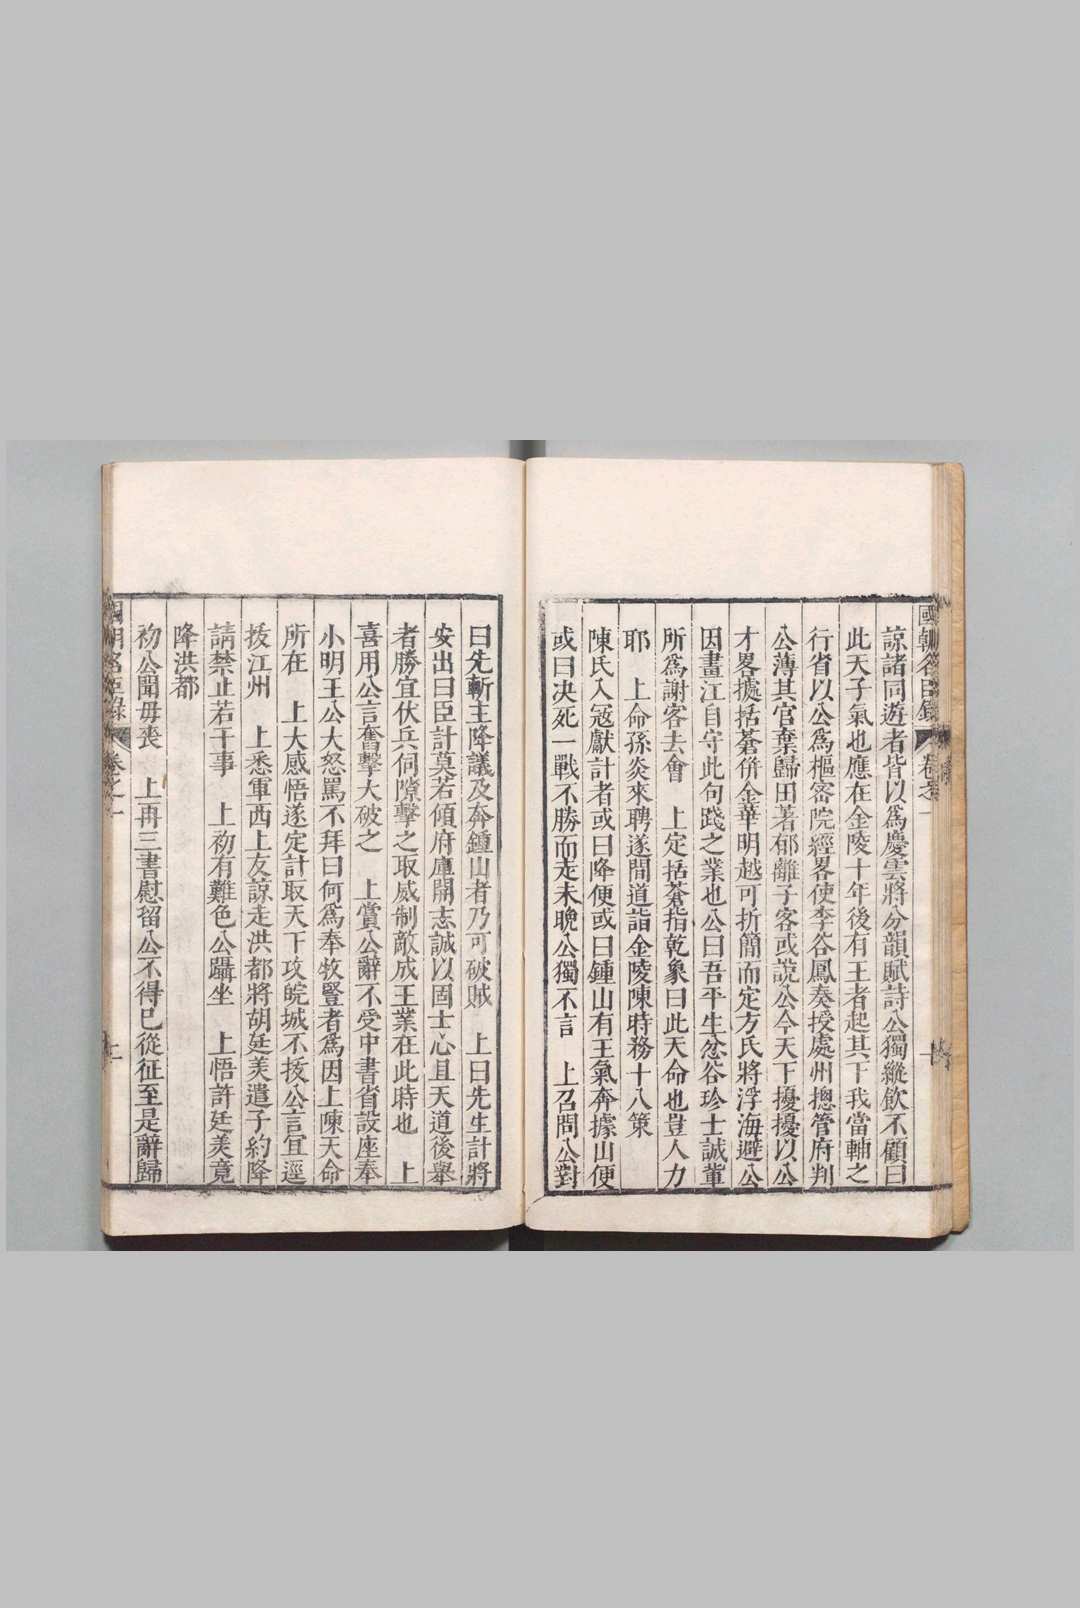 國朝名臣錄 卷之一
諒諸同遊者皆以爲慶雲將分韻賦詩公獨縱飲不顧曰
此天子氣也應在金陵十年後有王者起其下我當輔之
行省以公爲樞密院經畧使李谷鳳奏授處州摠管府判
公薄其官棄歸田著郁離子客或說公今天下擾擾以公
才畧據括蒼併金華明越可折簡而定方氏將浮海避公
因畫江自守此句踐之業也公曰吾平生忿谷珍士誠輩
所爲謝客去會 上定括蒼指乾象曰此天命也豈人力
耶 上命孫炎來聘遂間道詣金陵陳時務十八策
陳氏入寇獻計者或曰降便或曰鍾山有王氣奔據山便
或曰决死一戰不勝而走未晩公獨不言 上召問公對
曰先斬主降議及奔鍾山者乃可破賊 上曰先生計將
安出曰臣計莫若傾府庫開志誠以固士心且天道後舉
者勝宜伏兵伺隙擊之取威制敵成王業在此時也 上
喜用公言奮擊大破之 上賞公辭不受中書省設座奉
小明王公大怒罵不拜曰何爲奉牧豎者爲因上陳天命
所在 上大感悟遂定計取天下攻皖城不拔公言宜逕
拔江州 上悉軍西上友諒走洪都將胡廷美遣子約降
請禁止若干事 上初有難色公躡坐 上悟許廷美竟
降洪都
初公聞母喪 上再三書慰留公不得已從征至是辭歸
國朝名臣錄 卷之一 二